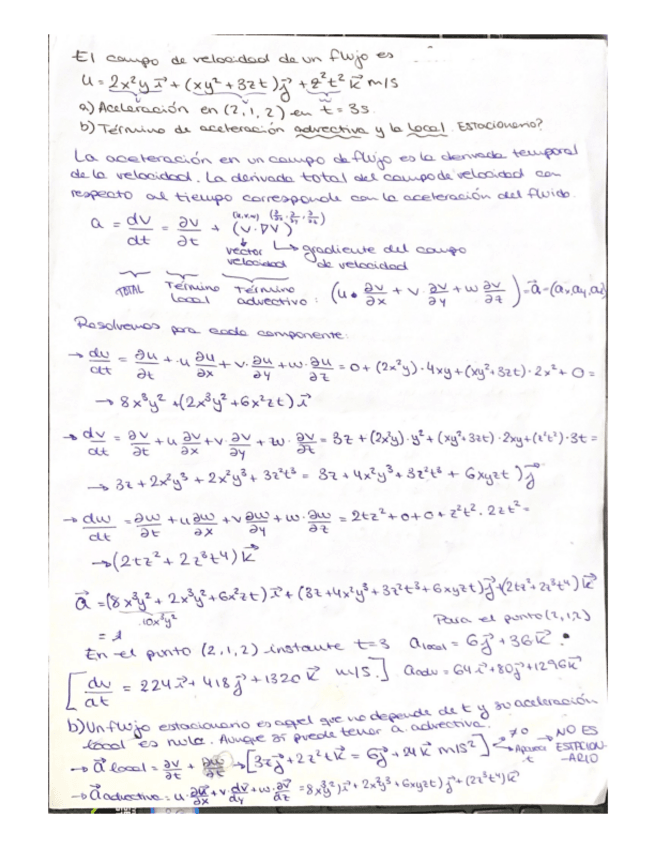 El campo de velocidad de un flujo es
u = 2x²y i + (xy² + 3zt) j + z²t² k m/s
a) Aceleración en (2, 1, 2) en t = 3s.
b) Término de aceleración advectiva y la local. Estacionario?
La aceleración en un campo de flujo es la derivada temporal
de la velocidad. La derivada total del campo de velocidad con
respecto al tiempo corresponde con la aceleración del fluido.
(u,v,w) (∂/∂x, ∂/∂y, ∂/∂z)
a = dv/dt = ∂v/∂t + (v · ∇V)
vector velocidad → gradiente del campo de velocidad
TOTAL Término local Término advectivo: (u · ∂v/∂x + v ∂v/∂y + w ∂v/∂z) = a = (ax, ay, az)
Resolvemos para cada componente:
→ du/dt = ∂u/∂t + u ∂u/∂x + v · ∂u/∂y + w · ∂u/∂z = 0 + (2x²y) · 4xy + (xy² + 3zt) · 2x² + 0 =
→ 8x³y² + (2x³y² + 6x²zt) i
→ dv/dt = ∂v/∂t + u ∂v/∂x + v · ∂v/∂y + w · ∂v/∂z = 3z + (2x²y) · y² + (xy² + 3zt) · 2xy + (z²t²) · 3t =
→ 3z + 2x²y³ + 2x²y³ + 3z²t³ = 3z + 4x²y³ + 3z²t³ + 6xyzt) j
→ dw/dt = ∂w/∂t + u ∂w/∂x + v ∂w/∂y + w · ∂w/∂z = 2tz² + 0 + 0 + z²t² · 2zt² =
→ (2tz² + 2z³t⁴) k
a = (8x³y² + 2x³y² + 6x²zt) i + (3z + 4x²y³ + 3z²t³ + 6xyzt) j + (2tz² + 2z³t⁴) k
10x³y²
Para el punto (2,1,2)
En el punto (2, 1, 2) instante t = 3 a local = 6j + 36k
[dv/dt = 224 i + 418 j + 1320 k m/s.] a adv = 64 i + 80 j + 1296 k
b) Un flujo estacionario es aquel que no depende de t y su aceleración
local es nula. Aunque sí puede tener a. advectiva.
→ a local = ∂v/∂t → [3z j + 2z²t k = 6j + 24 k m/s²] ≠0 Aparece t → NO ES ESTACIONARIO
→ a advectiva = u · ∂v/∂x + v · ∂v/∂y + w · ∂v/∂z = 8x³y²) i + 2x²y³ + 6xyzt) j + (2z³t⁴) k